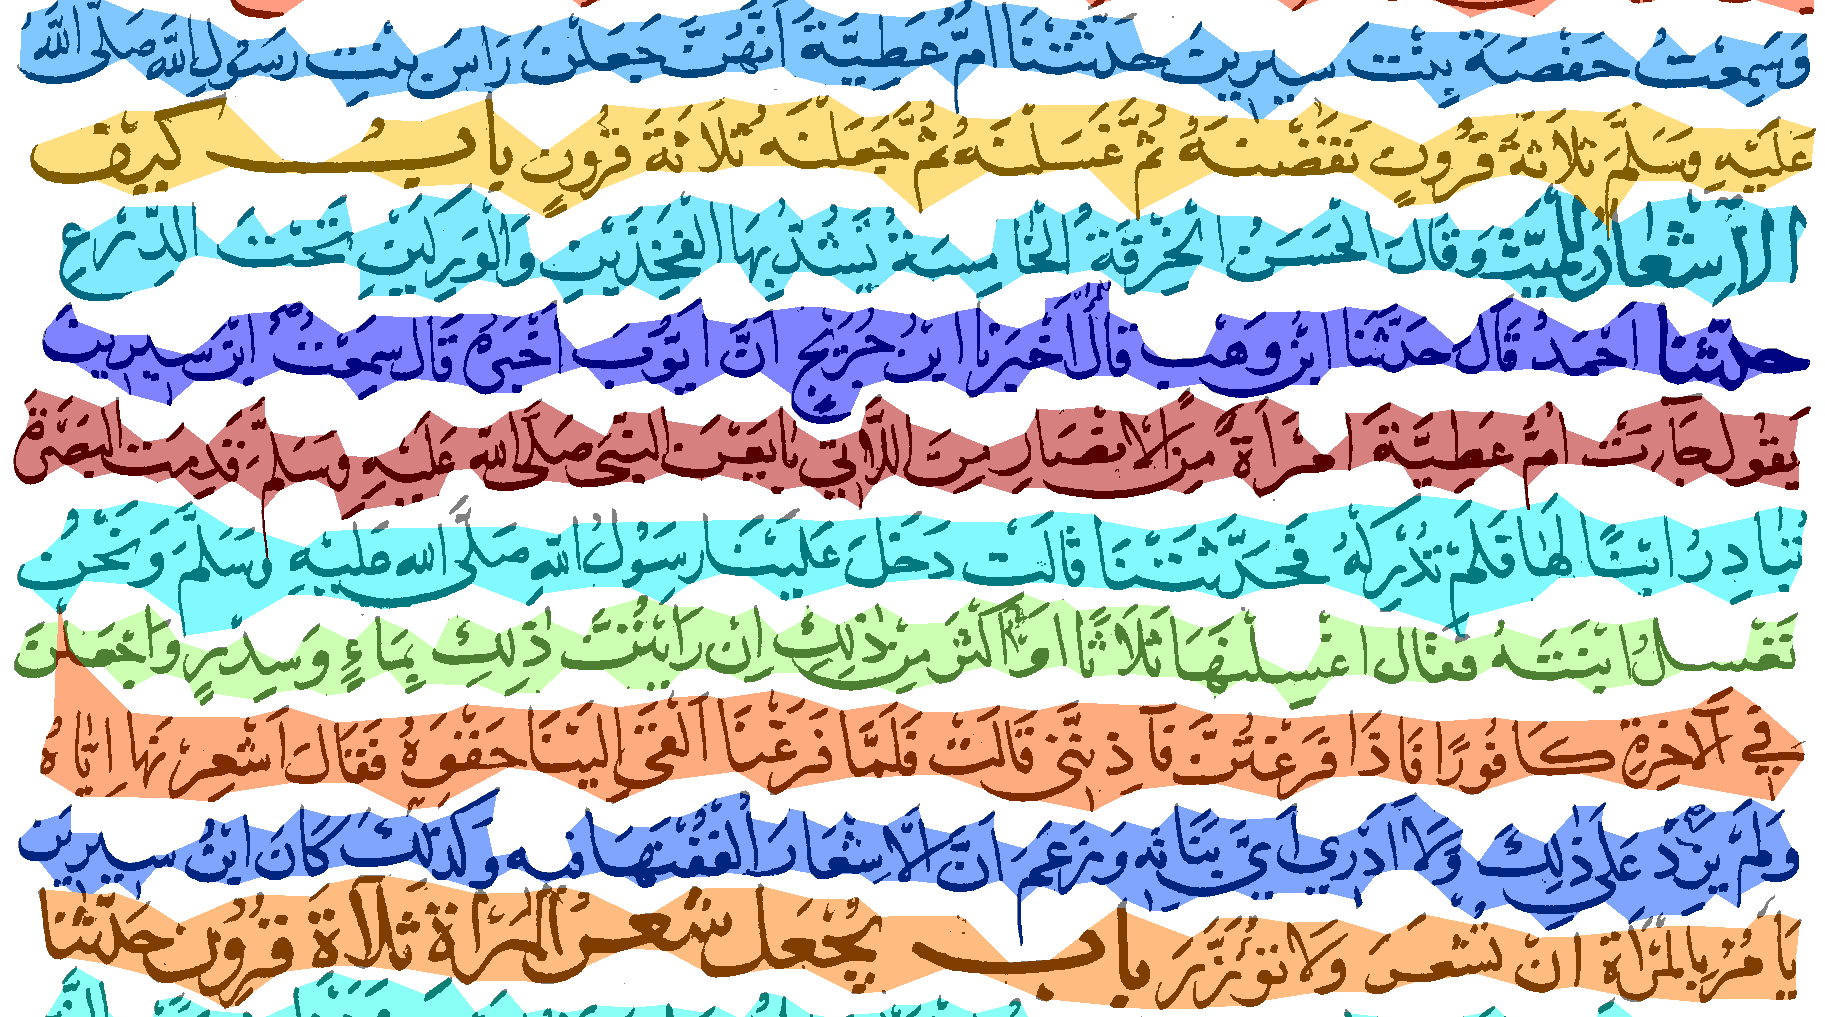 وَسَمِعْتُ حَفْصَةَ بِنْتَ سِيرِينَ حَدَّثَتْنَا أُمُّ عَطِيَّةَ أَنَّهُنَّ جَعَلْنَ رَاسَ بِنْتِ رَسُولِ اللَّهِ صَلَّى اللَّهُ
عَلَيْهِ وَسَلَّمَ ثَلَاثَةَ قُرُونٍ نَقَضْنَهُ ثُمَّ غَسَلْنَهُ ثُمَّ جَعَلْنَهُ ثَلَاثَةَ قُرُونٍ بَابُ كَيْفَ
الْإِشْعَارُ لِلْمَيِّتِ وَقَالَ الْحَسَنُ الْخِرْقَةُ الْخَامِسَةُ يَشُدُّ بِهَا الْفَخِذَيْنِ وَالْوَرِكَيْنِ تَحْتَ الدِّرْعِ
حَدَّثَنَا أَحْمَدُ قَالَ حَدَّثَنَا ابْنُ وَهْبٍ قَالَ أَخْبَرَنَا ابْنُ جُرَيْجٍ أَنَّ أَيُّوبَ أَخْبَرَهُ قَالَ سَمِعْتُ ابْنَ سِيرِينَ
يَقُولُ جَاءَتْ أُمُّ عَطِيَّةَ امْرَأَةٌ مِنَ الْأَنْصَارِ مِنَ اللَّاتِي بَايَعْنَ النَّبِيَّ صَلَّى اللَّهُ عَلَيْهِ وَسَلَّمَ قَدِمَتِ الْبَصْرَةَ
تُبَادِرُ ابْنًا لَهَا فَلَمْ تُدْرِكْهُ فَحَدَّثَتْنَا قَالَتْ دَخَلَ عَلَيْنَا رَسُولُ اللَّهِ صَلَّى اللَّهُ عَلَيْهِ وَسَلَّمَ وَنَحْنُ
نَغْسِلُ ابْنَتَهُ فَقَالَ اغْسِلْنَهَا ثَلَاثًا أَوْ أَكْثَرَ مِنْ ذَلِكَ إِنْ رَأَيْتُنَّ ذَلِكَ بِمَاءٍ وَسِدْرٍ وَاجْعَلْنَ
فِي الْآخِرَةِ كَافُورًا فَإِذَا فَرَغْتُنَّ فَآذِنَّنِي قَالَتْ فَلَمَّا فَرَغْنَا أَلْقَى إِلَيْنَا حَقْوَهُ فَقَالَ أَشْعِرْنَهَا إِيَّاهُ
وَلَمْ يَزِدْ عَلَى ذَلِكَ وَلَا أَدْرِي أَيَّ بَنَاتِهِ وَزَعَمَ أَنَّ الْإِشْعَارَ الْفُفْنَهَا فِيهِ وَكَذَلِكَ كَانَ ابْنُ سِيرِينَ
يَأْمُرُ بِالْمَرْأَةِ أَنْ تُشْعَرَ وَلَا تُؤْزَرَ بَابُ يُجْعَلُ شَعَرُ الْمَرْأَةِ ثَلَاثَةَ قُرُونٍ حَدَّثَنَا